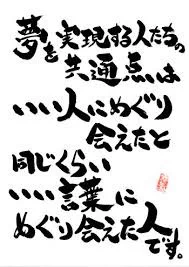 夢を実現する人たちの
共通点は
いい人にめぐり
会えたと
同じくらい
いい言葉に
めぐり会えた人
です。